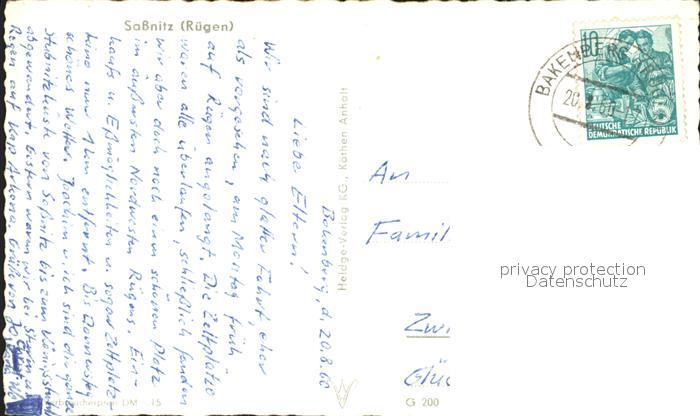 Saßnitz (Rügen)
Bakenberg, d. 20.8.60
Liebe Eltern!
Wir sind nach glatter Fahrt, eher
als vorgesehen, am Montag früh
auf Rügen angelangt. Die Zeltplätze
waren alle überlaufen, schließlich fanden
wir aber doch noch einen schönen Platz
im äußersten Nordwesten Rügens. Ein-
kaufs u. Eßmöglichkeiten u. sogar Zeltplatz-
kino nur 1 km entfernt. Bis Donnerstag
schönes Wetter. Joachim u. ich sind die ganze
Stubnitzküste von Saßnitz bis zum Königsstuhl
abgewandert. Gestern waren wir bei Sturm u.
Regen auf Kap Arkona. Grüßen
Heldge-Verlag KG., Köthen Anhalt
Verbraucherpreis DM -.15
G 200
An
Famil
Zwi
Glüc
BAKENBERG
20.8.60
10
DEUTSCHE
DEMOKRATISCHE REPUBLIK
privacy protection
Datenschutz